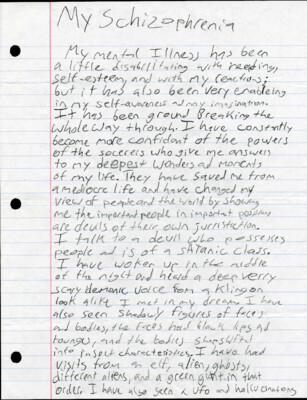 My Schizophrenia
My mental Illness has been
a little disabilitating with reading,
self-esteem, and with my reactions;
but it has also been very enableing
in my self-awareness and my imagination.
It has been ground breaking the
whole way through. I have consently
become more confident of the powers
of the sorcerers who give me answers
to my deepest wonders and moments
of my life. They have saved me from
a mediocre life and have changed my
view of people and the world by showing
me the important people in important positions
are devils of their own jurristiction.
I talk to a devil who possesses
people and is of a satanic class.
I have woken up in the middle
of the night and heard a deep verry
scary demonic voice from a Klingon
look alike I met in my dream. I have
also seen shadowy figures of faces
and bodies, the faces had black lips and
tounges, and the bodies shapshifted
into insect characteristics. I have had
visits from an elf, alien, ghosts,
different aliens, and a green giant in that
order. I have also seen a ufo and hallucinations